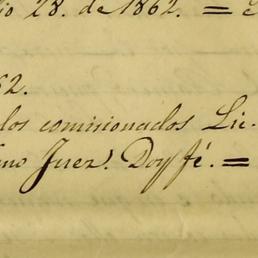 io 28. de 1862. =
62.
los comisionados Lic.
mo Juez. Doy fé. =